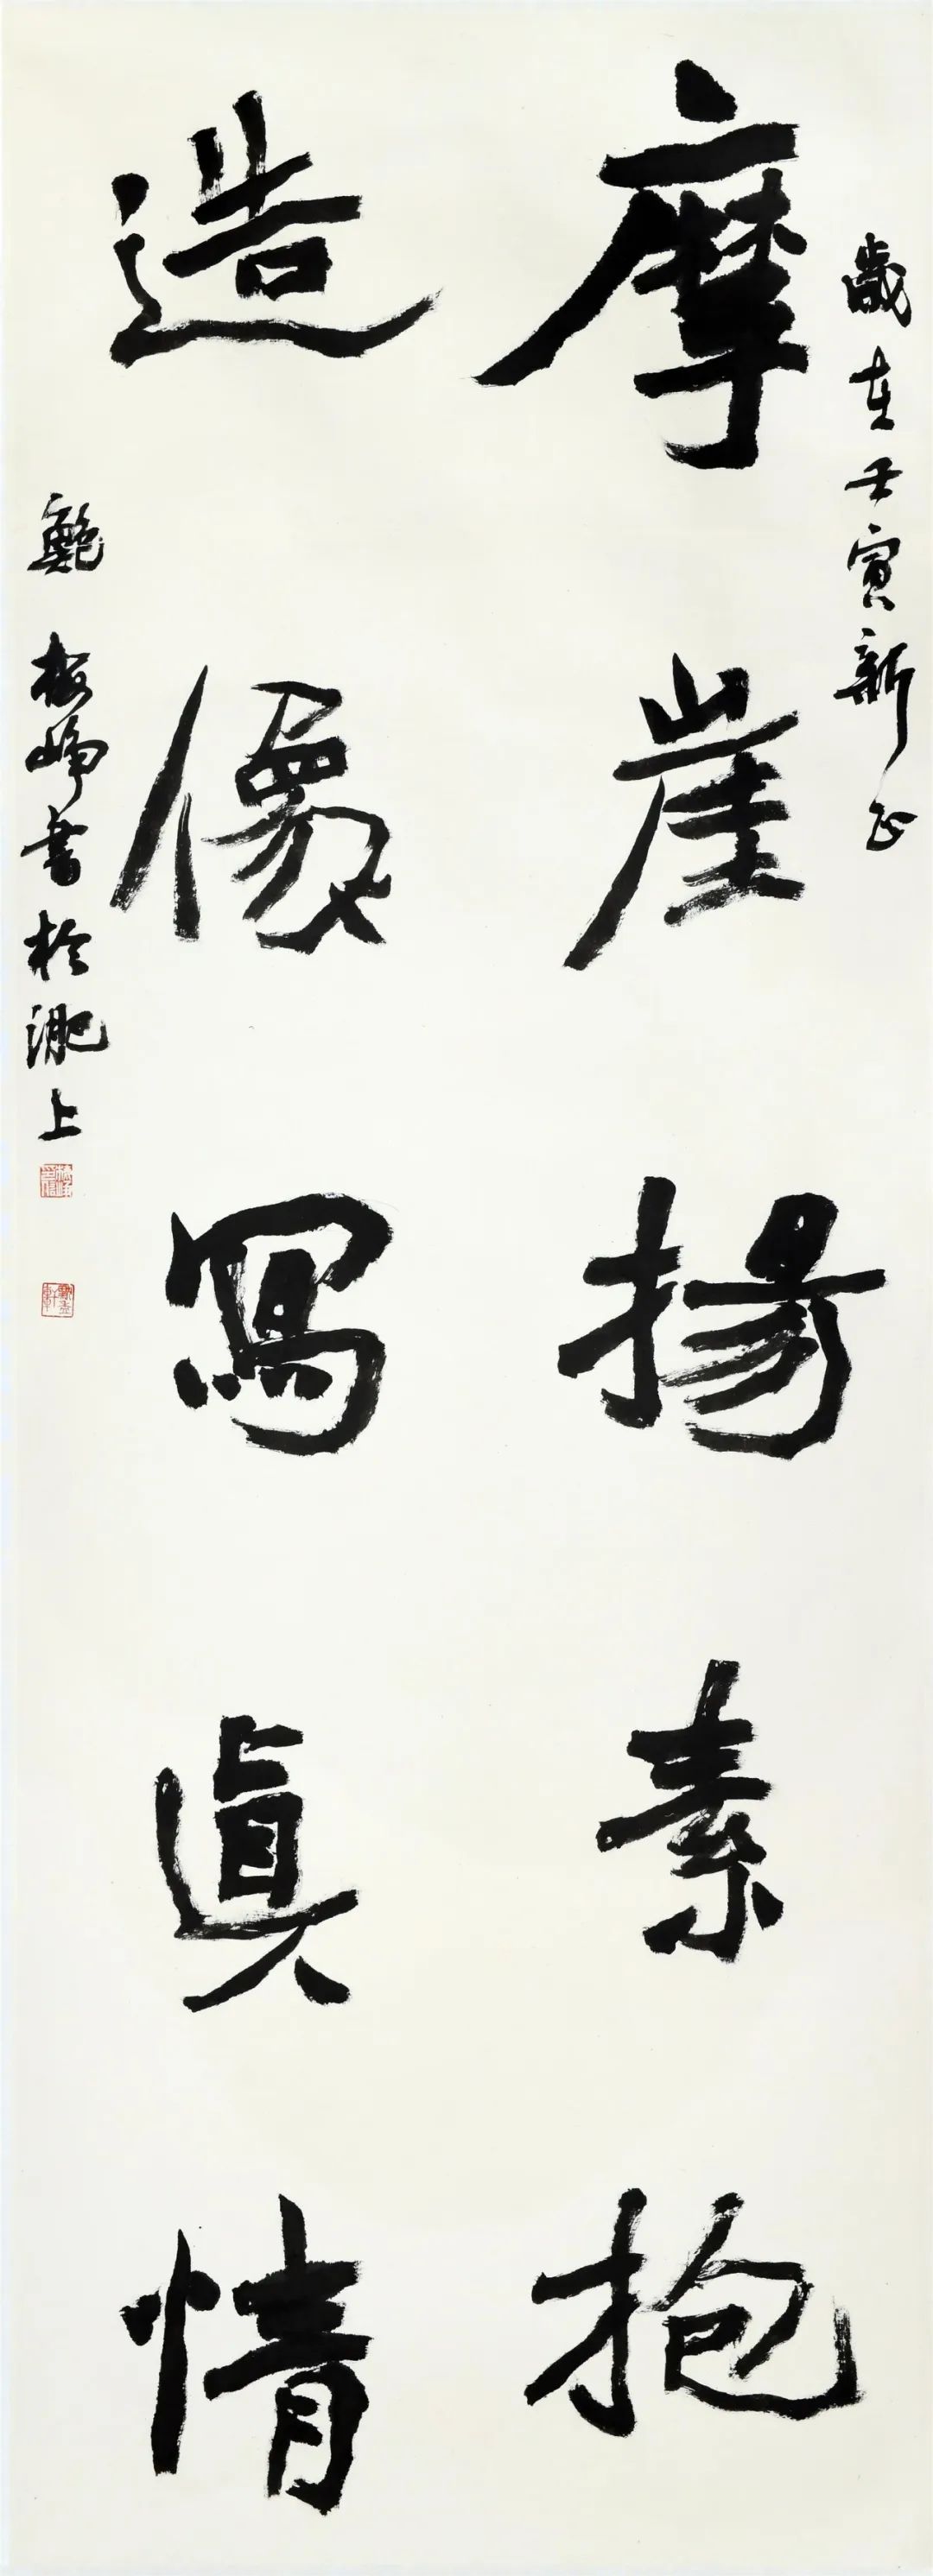 歲在壬寅新正
摩崖揚素抱
造像寫真情
鮑 桜峰書於淝上